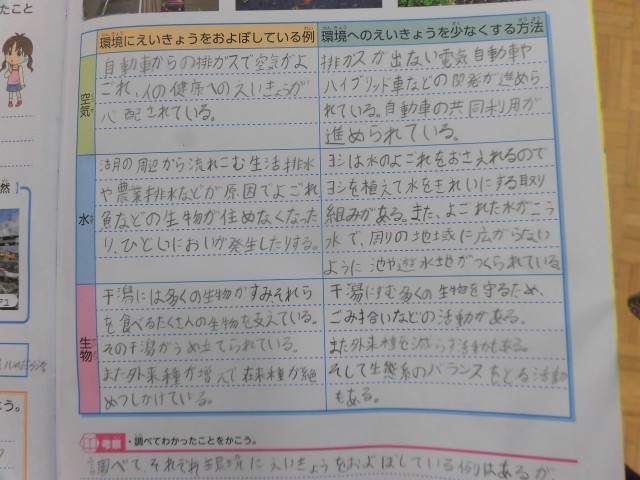 たこと
然】
環境にえいきょうをおよぼしている例
環境へのえいきょうを少なくする方法
空気
自動車からの排ガスで空気がよ
ごれ、人の健康へのえいきょうが
心配されている。
排ガスが出ない電気自動車や
ハイブリッド車などの開発が進めら
れている。自動車の共同利用が
進められている。
水
湖の周辺から流れこむ生活排水
や農業排水などが原因でよごれ
魚などの生物が住めなくなった
り、ひどいにおいが発生したりする。
ヨシは水のよごれをおさえれるので
ヨシを植えて水をきれいにする取り
組みがある。また、よごれた水がこう
水で、周りの地域に広がらない
ように池や遊水地がつくられている
生物
干潟には多くの生物がすみそれら
を食べるたくさんの生物を支えている。
その干潟がうめ立てられている。
また外来種が増えて在来種が絶
めつしかけている。
干潟にすむ多くの生物を守るため、
ごみ拾いなどの活動がある。
また外来種を減らす活動もある。
そして生態系のバランスをとる活動
もある。
考察・調べてわかったことをかこう。
調べて、それぞれ
にえいきょうをおよぼしている例はあるが、